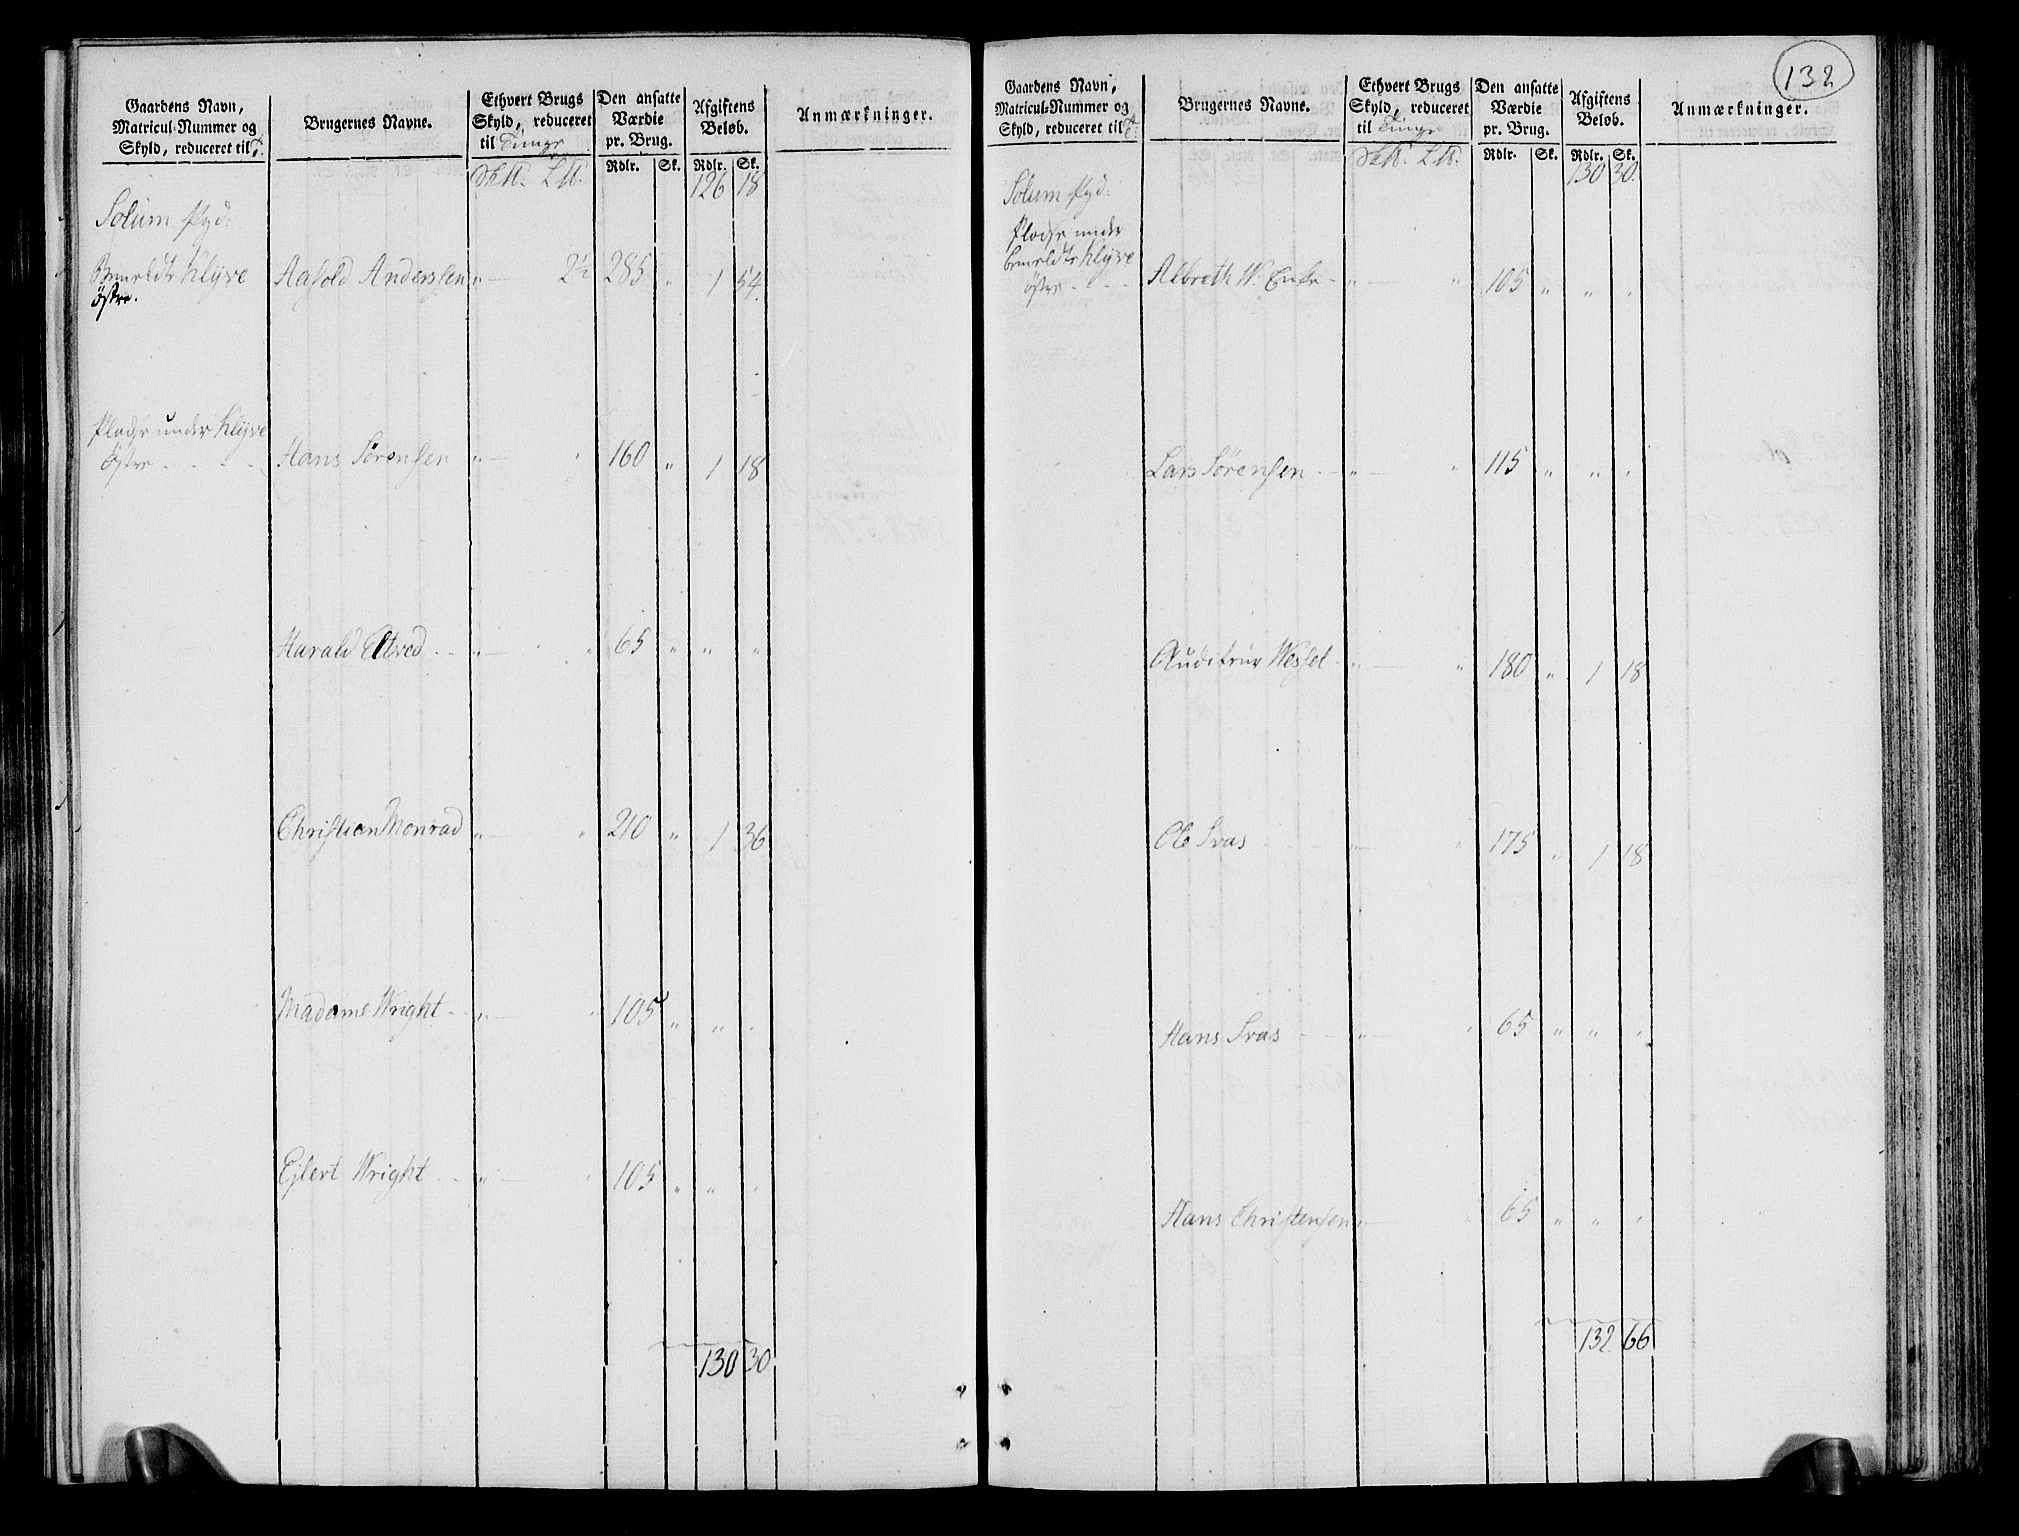 132
Gaardens Navn,
Matricul-Nummer og
Skyld, reduceret til T.
Brugernes Navne.
Ethvert Brugs
Skyld, reduceret
til Tunge
Den ansatte
Værdie
pr. Brug.
Afgiftens
Beløb.
Anmærkninger.
Rdlr. Sk. Rdlr. Sk.
126 18
Solum
Klyve
østre.
Aasold Anderssen " 2½ 285 " 1 54
Pladse under Klyve
østre Hans Sørensen " " 160 " 1 18
Harald Eltved " " 65 " " "
Christian Monrad " " 210 " 1 36
Madame Wright " " 105 " " "
Ejlert Wright " " 105 " " "
130 30
Gaardens Navn,
Matricul-Nummer og
Skyld, reduceret til T.
Brugernes Navne.
Ethvert Brugs
Skyld, reduceret
til Tunge
Den ansatte
Værdie
pr. Brug.
Afgiftens
Beløb.
Anmærkninger.
Rdlr. Sk. Rdlr. Sk.
130 30
Solum
Pladse under
Klyve
østre
Albreth W. " " 105 " " "
Lars Sørensen " " 115 " " "
Auditeur Wessel " " 180 " 1 18
Ole " " 175 " 1 18
Hans " " 65 " " "
Hans Christensen " " 65 " " "
132 66